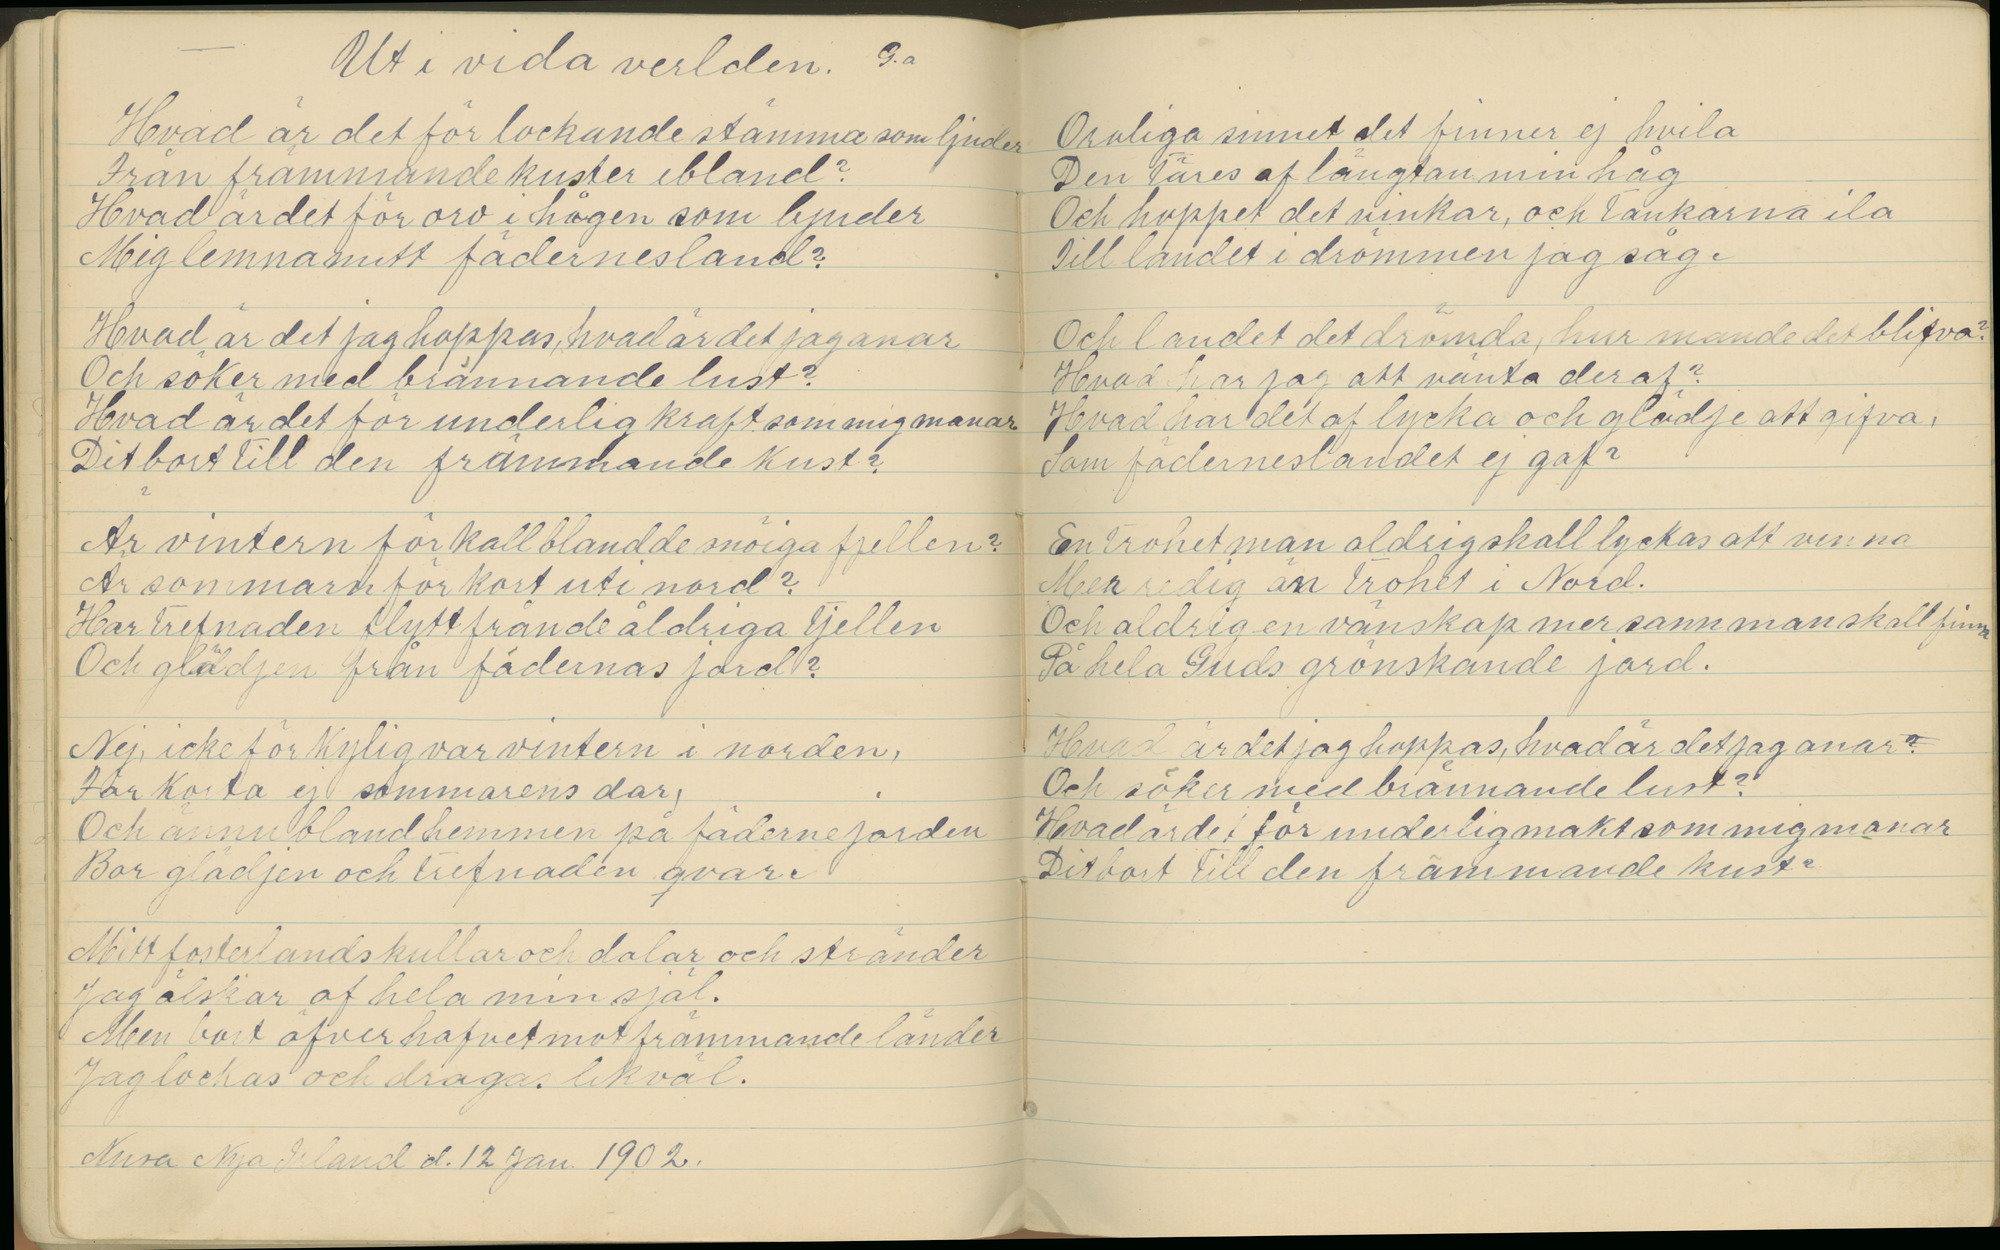 Ut i vida verlden. G.a
Hvad är det för lockande stämma som ljuder
Från främmande kuster ibland?
Hvad är det för oro i hågen som bjuder
Mig lemna mitt fädernesland?
Hvad är det jag hoppas, hvad är det jag anar
Och söker med brännande lust?
Hvad är det för underlig kraft som mig manar
Dit bort till den främmande kust?
Är vintern för kall bland de snöiga fjellen?
Är sommarn för kort uti nord?
Har trefnaden flytt från de åldriga tjellen
Och glädjen från fädernas jord?
Nej, icke för kylig var vintern i norden,
För korta ej sommarens dar,
Och ännu bland hemmen på fäderne jorden
Bor glädjen och trefnaden qvar.
Mitt fosterlands kullar och dalar och stränder
Jag älskar af hela min själ.
Men bort öfver hafvet mot främmande länder
Jag lockas och dragas likväl.
Nusa Nya Irland d. 12 Jan. 1902.
Oroliga sinnet det finner ej hvila
Den täres af längtan min håg
Och hoppet det vinkar, och tankarna ila
Till landet i drömmen jag såg.
Och landet det drömda, hur mande det blifva?
Hvad har jag att vänta deraf?
Hvad har det af lycka och glädje att gifva,
Som fäderneslandet ej gaf?
En trohet man aldrig skall lyckas att vinna
Mer redig än trohet i Nord.
Och aldrig en vänskap mer sann man skall finna
På hela Guds grönskande jord.
Hvad är det jag hoppas, hvad är det jag anar?
Och söker med brännande lust?
Hvad är det för underlig makt som mig manar
Dit bort till den främmande kust?